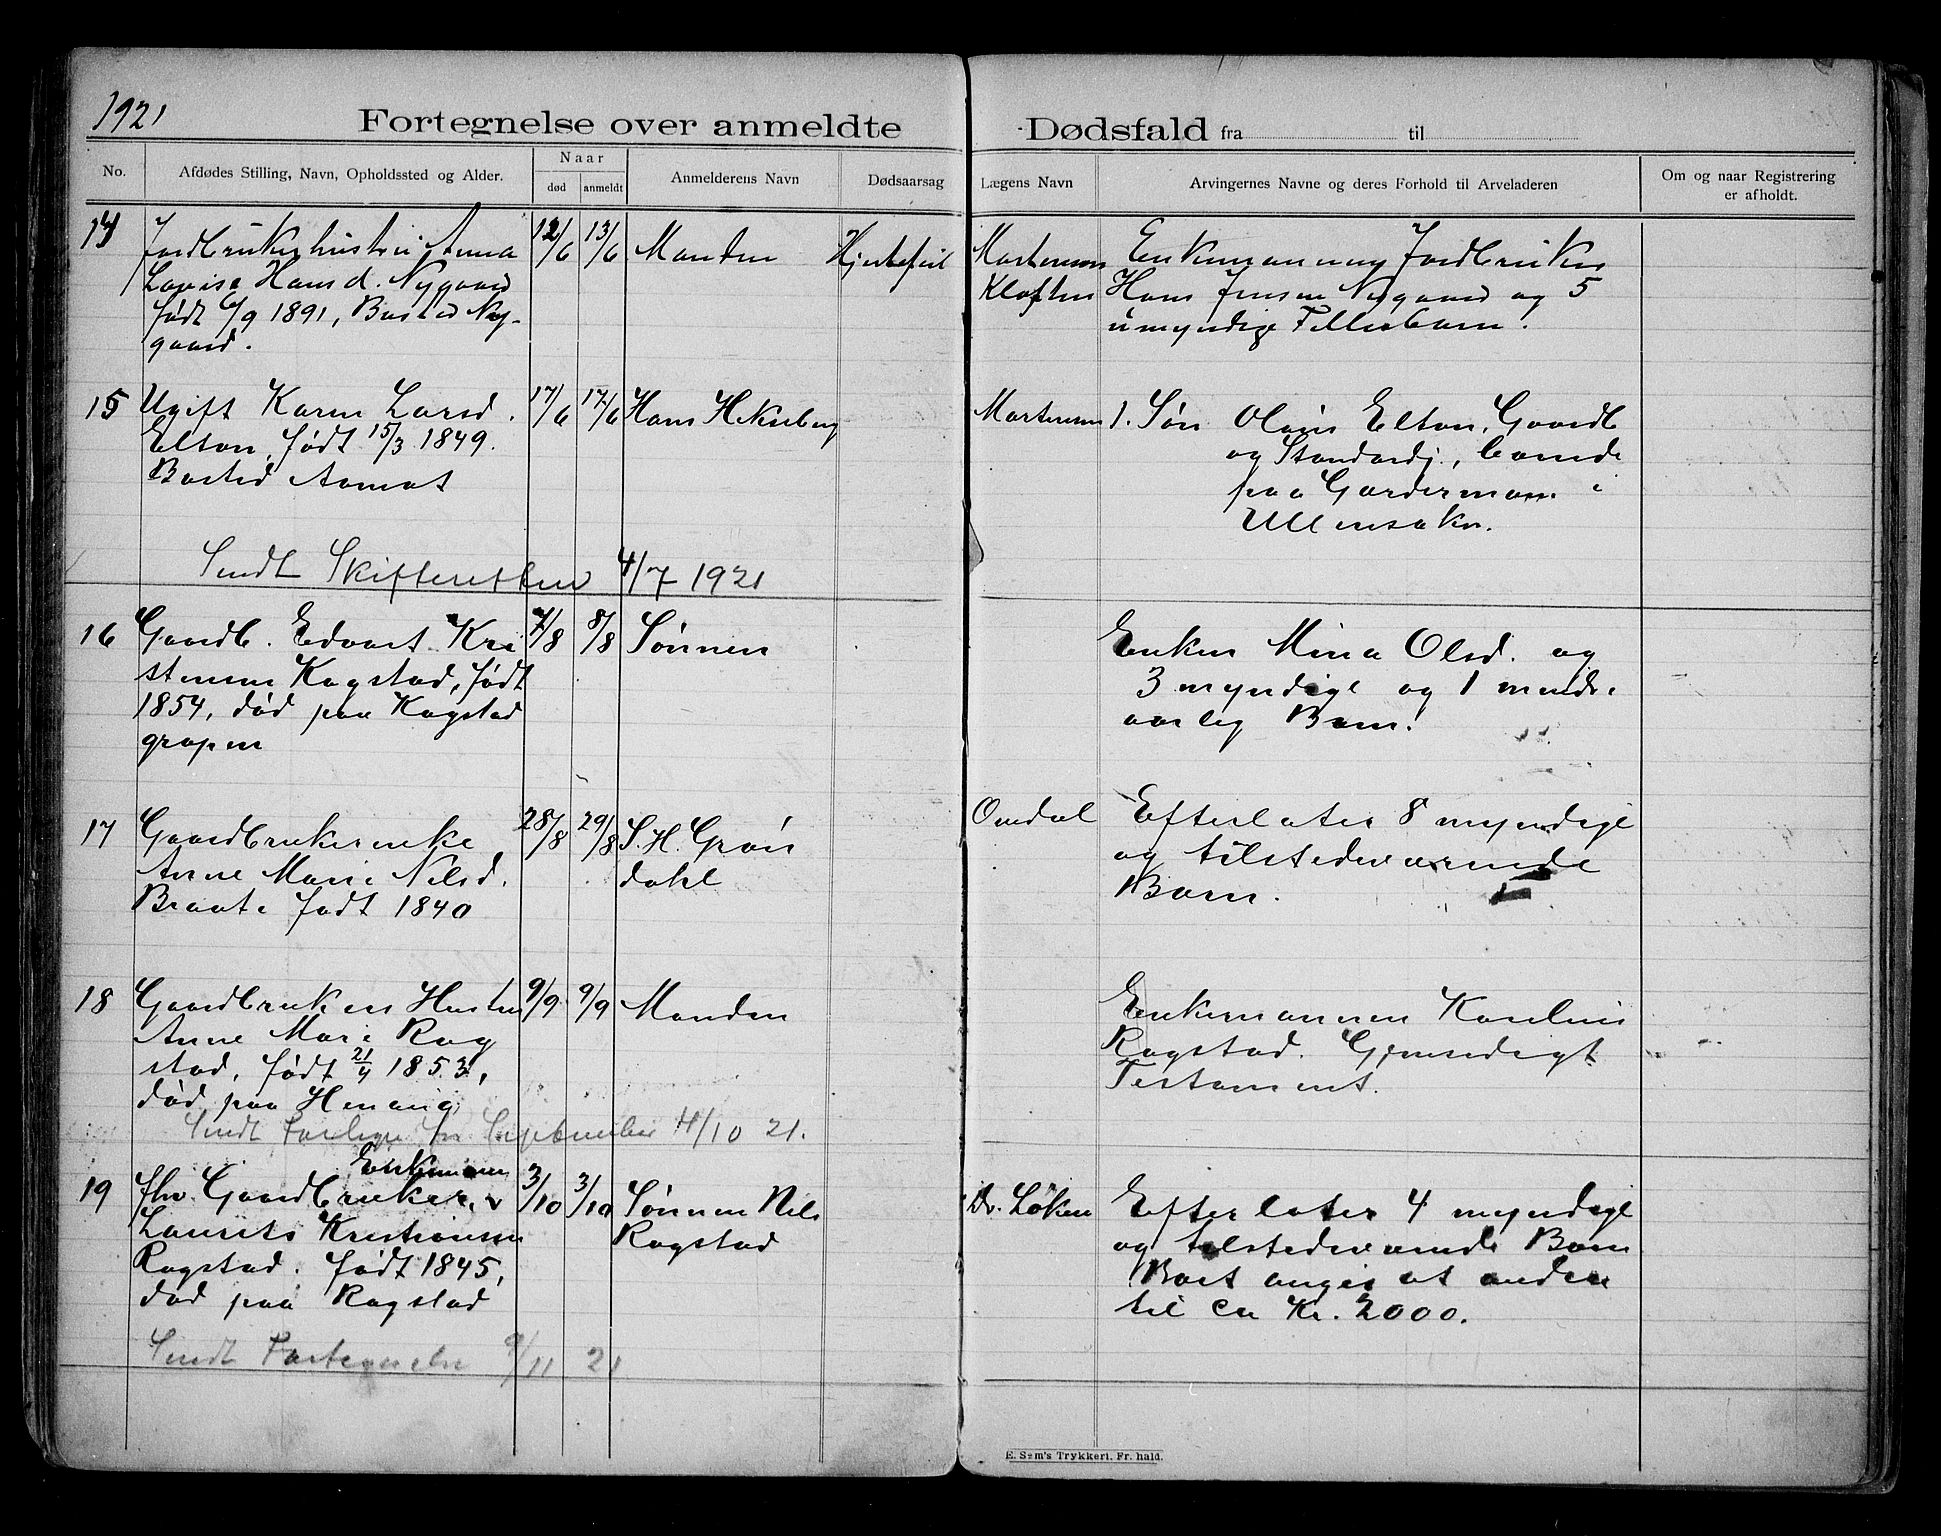 1921
Fortegnelse over anmeldte Dødsfald fra til
No.
Afdødes Stilling, Navn, Opholdssted og Alder.
Naar
død
anmeldt
Anmelderens Navn
Dødsaarsag
Lægens Navn
Arvingernes Navne og deres Forhold til Arveladeren
Om og naar Registrering
er afholdt.
14 Jordbrukerhustru Anna 12/6 13/6 Manden Hjertefeil Mortensen Enkemanneng Jordbruker
Lovise Hansd. Nygaard Kløften Hans Jensen Nygaard og 5
født 6/9 1891, Bosted Ny- umyndige Fellesbarn.
gaard.
15 Ugift Karen Larsd. 17/6 17/6 Hans Hekseberg Mortensen 1. Søn Olaus Elton, Gaardb
Elton, født 15/3 1849. og Standardj., boende
Bosted Aamot paa Gardermoen i
Ullensaker.
Sendt Skifteretten 4/7 1921
16 Gaardb. Edvart Kri 7/8 8/8 Sønnen Enken Mina Olsd. og
stensen Kogstad, født 3 myndige og 1 mindre
1854, død paa Kogstad aarig Barn.
grapen
17 Gaardbrukerenke 28/8 29/8 S. H. Grøn Omdal Efterlater 8 myndige
Anne Marie Nilsd. dahl og tilstedeværende
Braate født 1840 Barn.
18 Gaardbrukers Hustru 9/9 9/9 Manden Enkemannen Karelius
Anne Marie Rog Rogstad. Gjensedigt
stad, født 21/4 1853, Testament.
død paa Henang
Sendt Forlegn for September 4/10 21.
Enkeman
19 fhv. Gaardbruker, v 3/10 3/10 Sønnen Nils Dr. Løken Efterlater 4 myndige
Laurits Kristiansen Rogstad og tilstedeværende Barn
Rogstad. født 1845, Boet angis at andra
død paa Rogstad til ca Kr. 2000.
Sendt Fortegnelse 9/11 21
E. Sem's Trykkeri. Fr.hald.